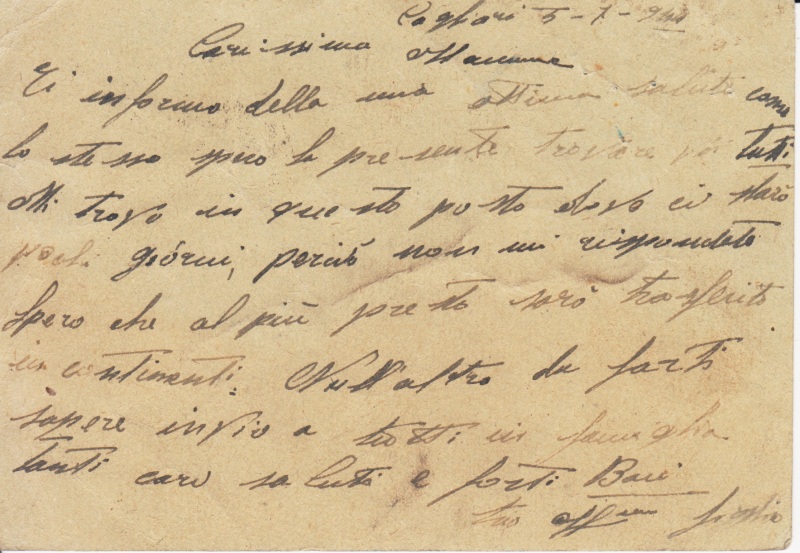 Cagliari 5-7-944
Carissima Mamma
Ti informo della mia ottima salute come
lo stesso spero la presente trovare voi tutti
Mi trovo in questo posto dove ci starò
pochi giorni, perciò non mi rispondete
Spero che al più presto sarò trasferito
in continenti. Null'altro da farti
sapere invio a tutti in famiglia
tanti cari saluti e forti Baci
tuo aff figlio